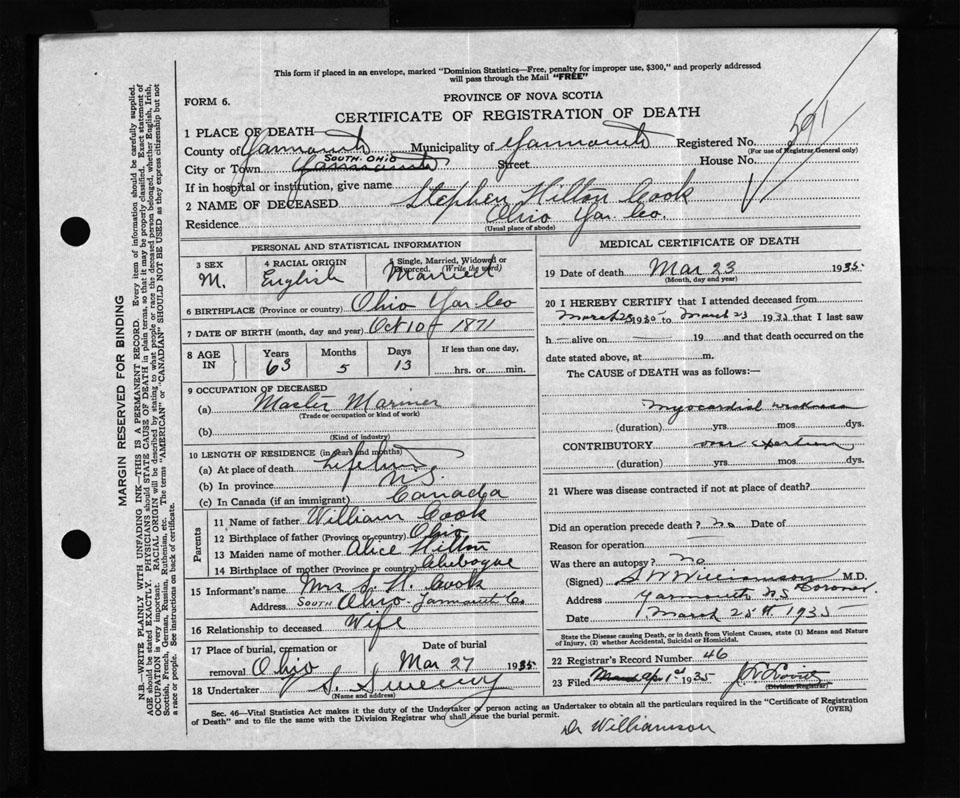 This form if placed in an envelope, marked "Dominion Statistics—Free, penalty for improper use, $300," and properly addressed
will pass through the Mail "FREE"
FORM 6.
PROVINCE OF NOVA SCOTIA
CERTIFICATE OF REGISTRATION OF DEATH
591
1 PLACE OF DEATH
County of Yarmouth Municipality of Yarmouth Registered No.
(For use of Registrar General only)
City or Town Yarmouth SOUTH OHIO Street House No.
If in hospital or institution, give name
2 NAME OF DECEASED Stephen Hilton Cook
Residence Ohio Yar. Co.
(Usual place of abode)
PERSONAL AND STATISTICAL INFORMATION
3 SEX M.
4 RACIAL ORIGIN English
5 Single, Married, Widowed or Divorced. (Write the word) Married
6 BIRTHPLACE (Province or country) Ohio Yar. Co
7 DATE OF BIRTH (month, day and year) Oct 10 1871
8 AGE IN Years 63 Months 5 Days 13 If less than one day, hrs. or min.
9 OCCUPATION OF DECEASED
(a) Master Mariner
(Trade or occupation or kind of work)
(b)
(Kind of industry)
10 LENGTH OF RESIDENCE (in years and months)
(a) At place of death Lifetime
(b) In province N.S.
(c) In Canada (if an immigrant) Canada
Parents
11 Name of father William Cook
12 Birthplace of father (Province or country) Ohio
13 Maiden name of mother Alice Hilton
14 Birthplace of mother (Province or country) Chebogue
15 Informant's name Mrs S. H. Cook
Address SOUTH Ohio Yarmouth Co
16 Relationship to deceased Wife
17 Place of burial, cremation or
removal Ohio Date of burial Mar 27 1935
18 Undertaker S. Sweeny
(Name and address)
MEDICAL CERTIFICATE OF DEATH
19 Date of death Mar 23 1935
(Month, day and year)
20 I HEREBY CERTIFY that I attended deceased from
March 23 1935 to March 23 1935 that I last saw
h alive on 19 and that death occurred on the
date stated above, at m.
The CAUSE of DEATH was as follows:—
Myocardial weakness
(duration) yrs mos dys.
CONTRIBUTORY over exertion
(duration) yrs mos dys.
21 Where was disease contracted if not at place of death?
Did an operation precede death? no Date of
Reason for operation
Was there an autopsy? no
(Signed) Williamson M.D.
Coroner.
Address Yarmouth N.S.
Date March 25th 1935
State the Disease causing Death, or in death from Violent Causes, state (1) Means and Nature
of Injury, (2) whether Accidental, Suicidal or Homicidal.
22 Registrar's Record Number 46
23 Filed Apr 1st 1935
(Division Registrar)
Sec. 46—Vital Statistics Act makes it the duty of the Undertaker or person acting as Undertaker to obtain all the particulars required in the "Certificate of Registration
of Death" and to file the same with the Division Registrar who shall issue the burial permit.
(OVER)
Dr Williamson
MARGIN RESERVED FOR BINDING
N.B.—WRITE PLAINLY WITH UNFADING INK—THIS IS A PERMANENT RECORD. Every item of information should be carefully supplied.
AGE should be stated EXACTLY. PHYSICIANS should STATE CAUSE OF DEATH in plain terms, so that it may be properly classified. Exact statement of
OCCUPATION is very important. RACIAL ORIGIN will be described by stating to what people or race the deceased person belonged, whether English, Irish,
Scottish, French, German, Russian, Ruthenian, etc. The terms "AMERICAN" or "CANADIAN" SHOULD NOT BE USED as they express citizenship but not
a race or people. See instructions on back of certificate.